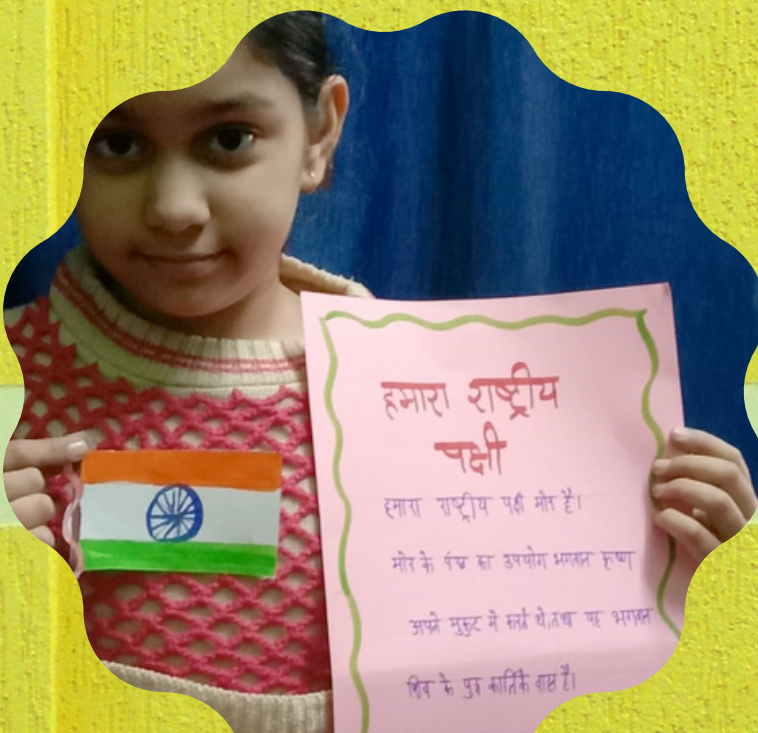 हमारा राष्ट्रीय
पक्षी
हमारा राष्ट्रीय पक्षी मोर है।
मोर के पंख का उपयोग भगवान कृष्ण
अपने मुकुट में करते थे,तथा यह भगवान
शिव के पुत्र कार्तिके है।